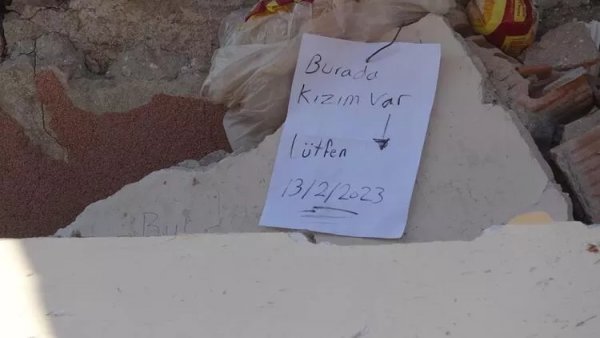 Burada
Kızım var
lütfen
13/2/2023
Bu